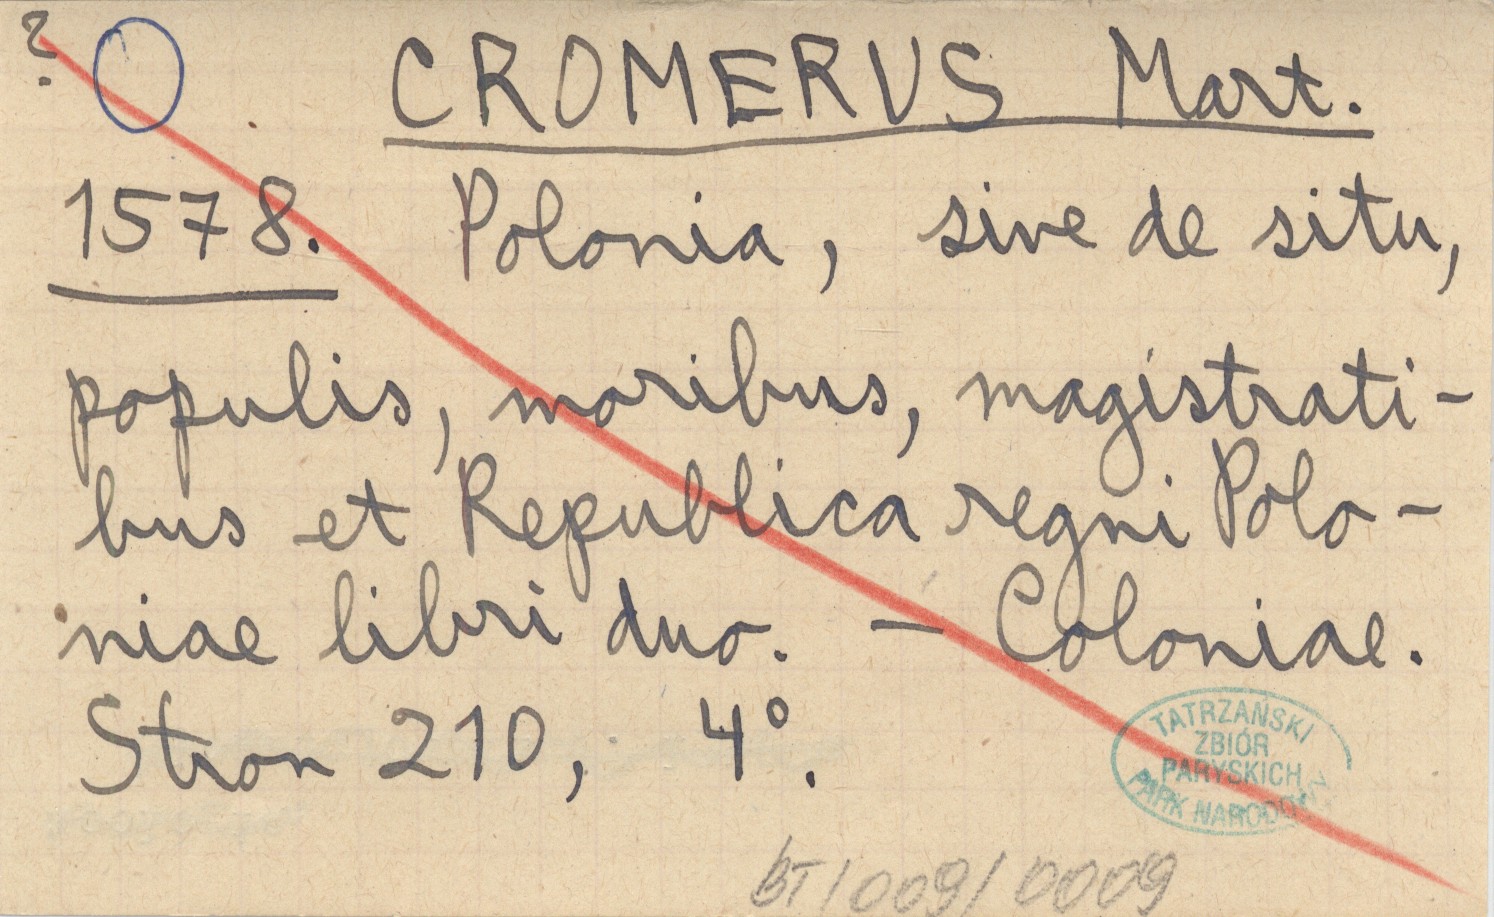 ?
CROMERUS Mart.
1578. Polonia, sive de situ,
populis, moribus, magistrati-
bus et Republica regni Polo-
niae libri duo. — Coloniae.
Stron 210, 4°.
TATRZAŃSKI
ZBIÓR
PARYSKICH
PARK NARODOWY
BT/009/0009